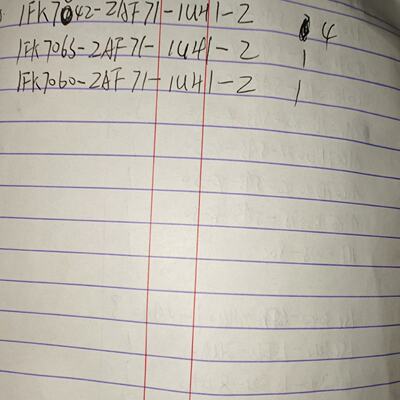 1FK7042-2AF71-1UH1-2 4
1FK7063-2AF71-1UH1-2 1
1FK7060-2AF71-1UH1-2 1